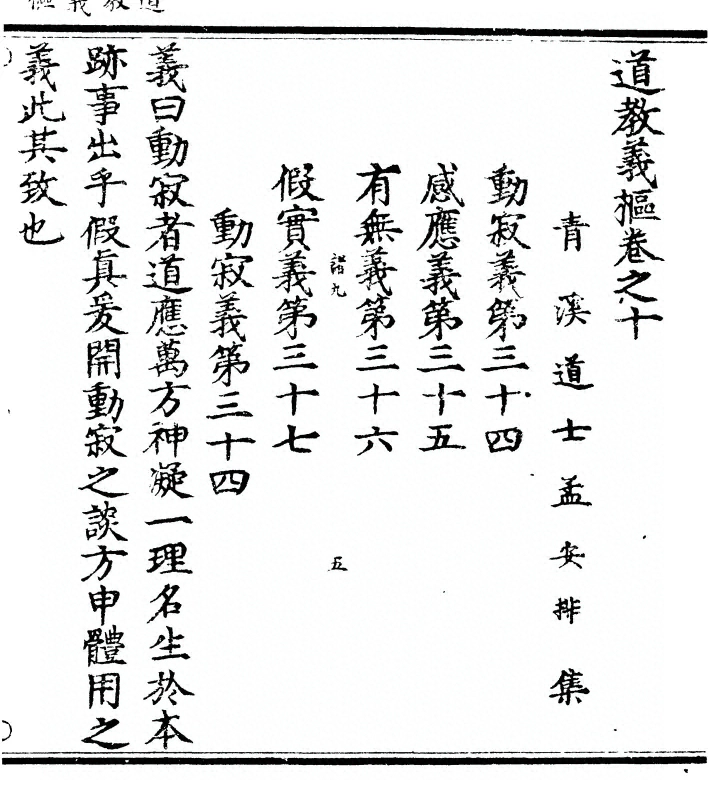 道教義樞卷之十
青溪道士孟安排集
動寂義第三十四
感應義第三十五
有無義第三十六
諸九
五
假實義第三十七
動寂義第三十四
義曰動寂者道應萬方神凝一理名生於本
跡事出乎假真爰開動寂之談方申體用之
義此其致也